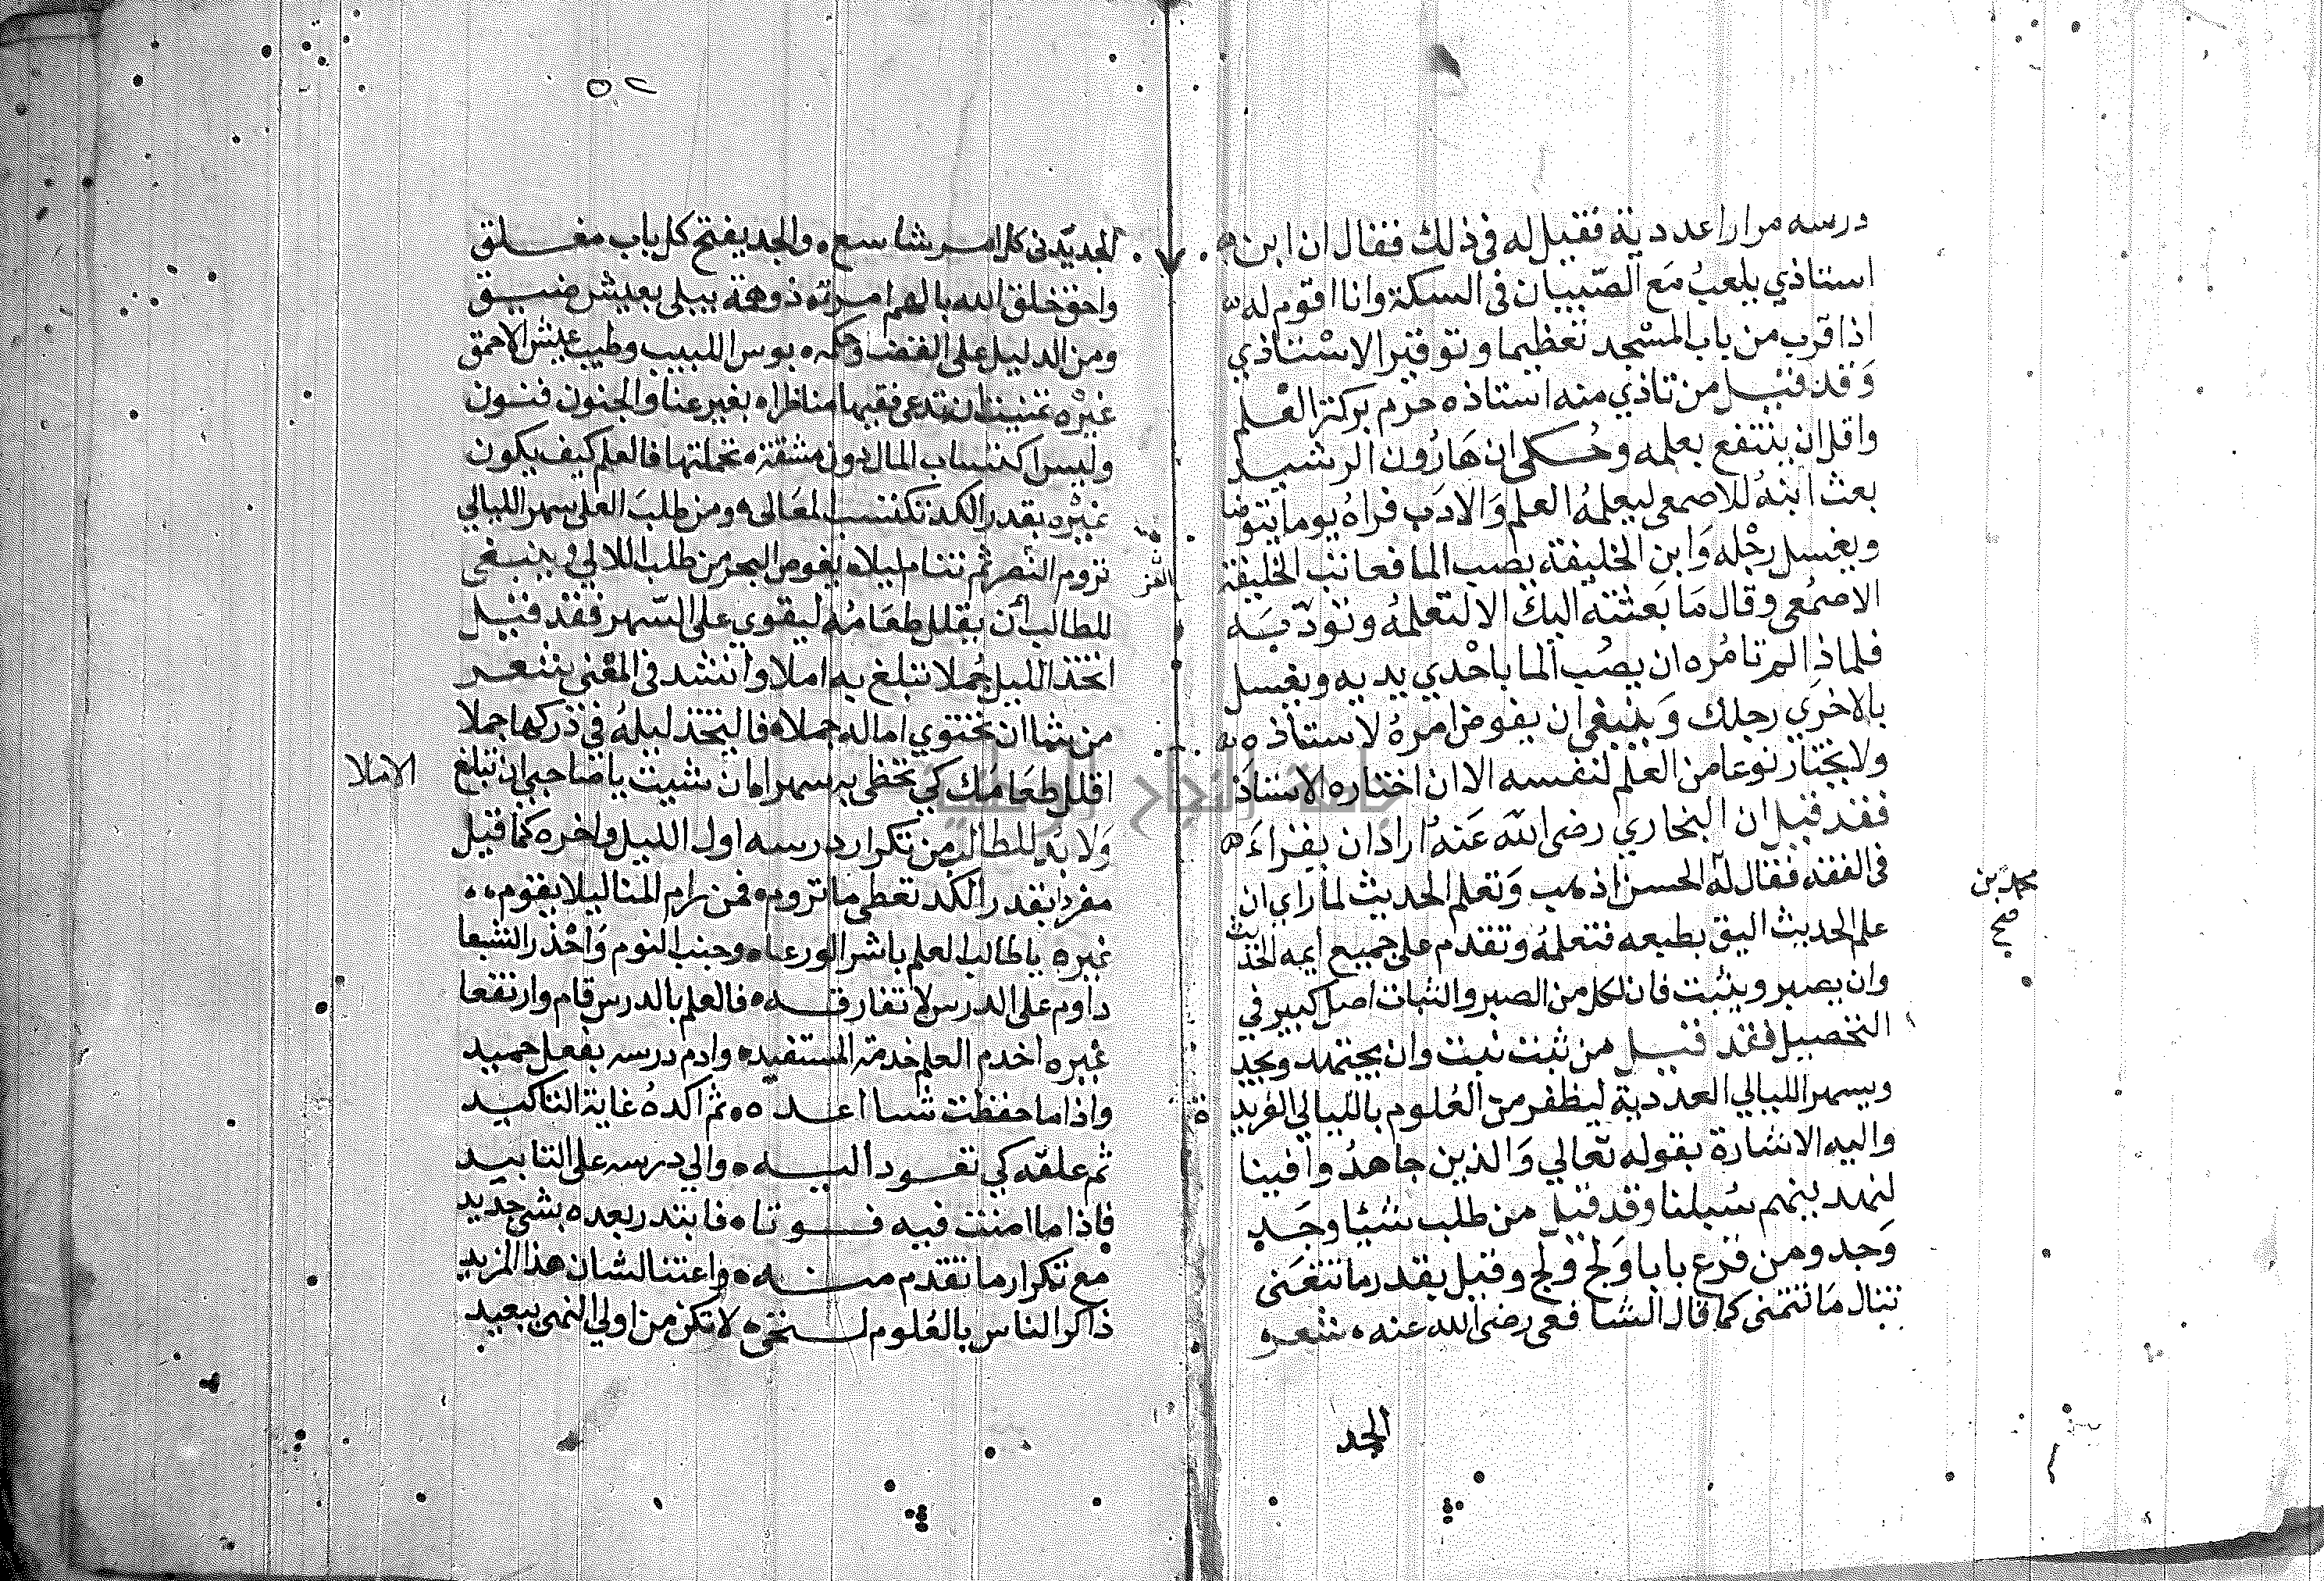 درسه مرارا عديدة فقيل له في ذلك فقال ان ابن
استاذي يلعب مع الصبيان في السكة وانا اقوم له
اذا قرب من باب المسجد تعظيما وتوقيرا لاستاذي
وقد قيل من تاذي منه استاذه حرم بركة العلم
واقل ان ينتفع بعلمه وحكى ان هارون الرشيد
بعث ابنه للاصمعي ليعلمه العلم والادب فراه يوما يتوضا
ويغسل رجله وابن الخليفة يصب الما فعاتب الخليفة
الاصمعي وقال ما بعثته اليك الا لتعلمه وتودبه
فلماذا لم تامره ان يصب الما باحدي يديه ويغسل
بالاخري رجلك وينبغي ان يفوض امره لاستاذه
ولا يختار نوعا من العلم لنفسه الا ان اختاره الاستاذ
فقد قيل ان البخاري رضي الله عنه اراد ان يقراء
في الفقه فقال له الحسن اذهب وتعلم الحديث لما راي ان
محمد بن
صح
علم الحديث اليق بطبعه فتعلمه وتقدم على جميع ايمه الحديث
وان يصبر ويثبت فان لكل من الصبر والثبات اصل كبير في
التحصيل فقد قيل من ثبت نبت وان يجتهد ويجد
ويسهر الليالي العديدة ليظفر من العلوم بالليالي الفريدة
واليه الاشارة بقوله تعالي والذين جاهدوا فينا
لنهدينهم سبلنا وقد قيل من طلب شيئا وجد
وجد ومن قرع بابا ولج ولج وقيل بقدر ما تتعنى
تنال ما تتمنى كما قال الشافعي رضي الله عنه شعر
الجد
٥٢
الجد يدني كل امر شاسع والجد يفتح كل باب مغلق
واحق خلق الله بالهم امرؤ ذو همة يبلى بعيش ضيق
ومن الدليل على القضا وحكمه بوس اللبيب وطيب عيش الاحمق
غيره تمنيت ان تدعى فقيها مناظرا بغير عنا والجنون فنون
وليس اكتساب المال دون مشقة تحملتها فالعلم كيف يكون
غيره بقدر الكد تكتسب المعالى ومن طلب العلى سهر الليالي
تروم العز ثم تنام ليلا يغوص البحر من طلب اللالي وينبغي
العز
للطالب أن يقلل طعامه ليقوي على السهر فقد قيل
اتخذ الليل جملا تبلغ به املا وانشد في المعني شعر
من شا ان تحتوي اماله جملا فاليتخذ ليله في دركها جملا
اقلل طعامك كي تحظى به سهرا ان شيت يا صاحبي ان تبلغ
الاملا
ولا بد للطالب من تكرار درسه اول الليل واخره كما قيل
مفرد بقدر الكد تعطى ما تروم فمن رام المنا ليلا يقوم
غيره يا طالب العلم باشر الورعا وجنب النوم واحذر الشبعا
داوم على الدرس لا تفارقه فالعلم بالدرس قام وارتفعا
غيره اخدم العلم خدمة المستفيد وادم درسه بفعل حميد
واذا ما حفظت شيا اعده ثم اكده غاية التاكيد
ثم علقه كي تعود اليه والي درسه على التابيد
فاذا ما امنت فيه فوتا فابتدر بعده بشي جديد
مع تكرار ما تقدم منه واعتنا لشان هذا المزيد
ذاكر الناس بالعلوم لتحى لا تكن من اولي النهى ببعيد